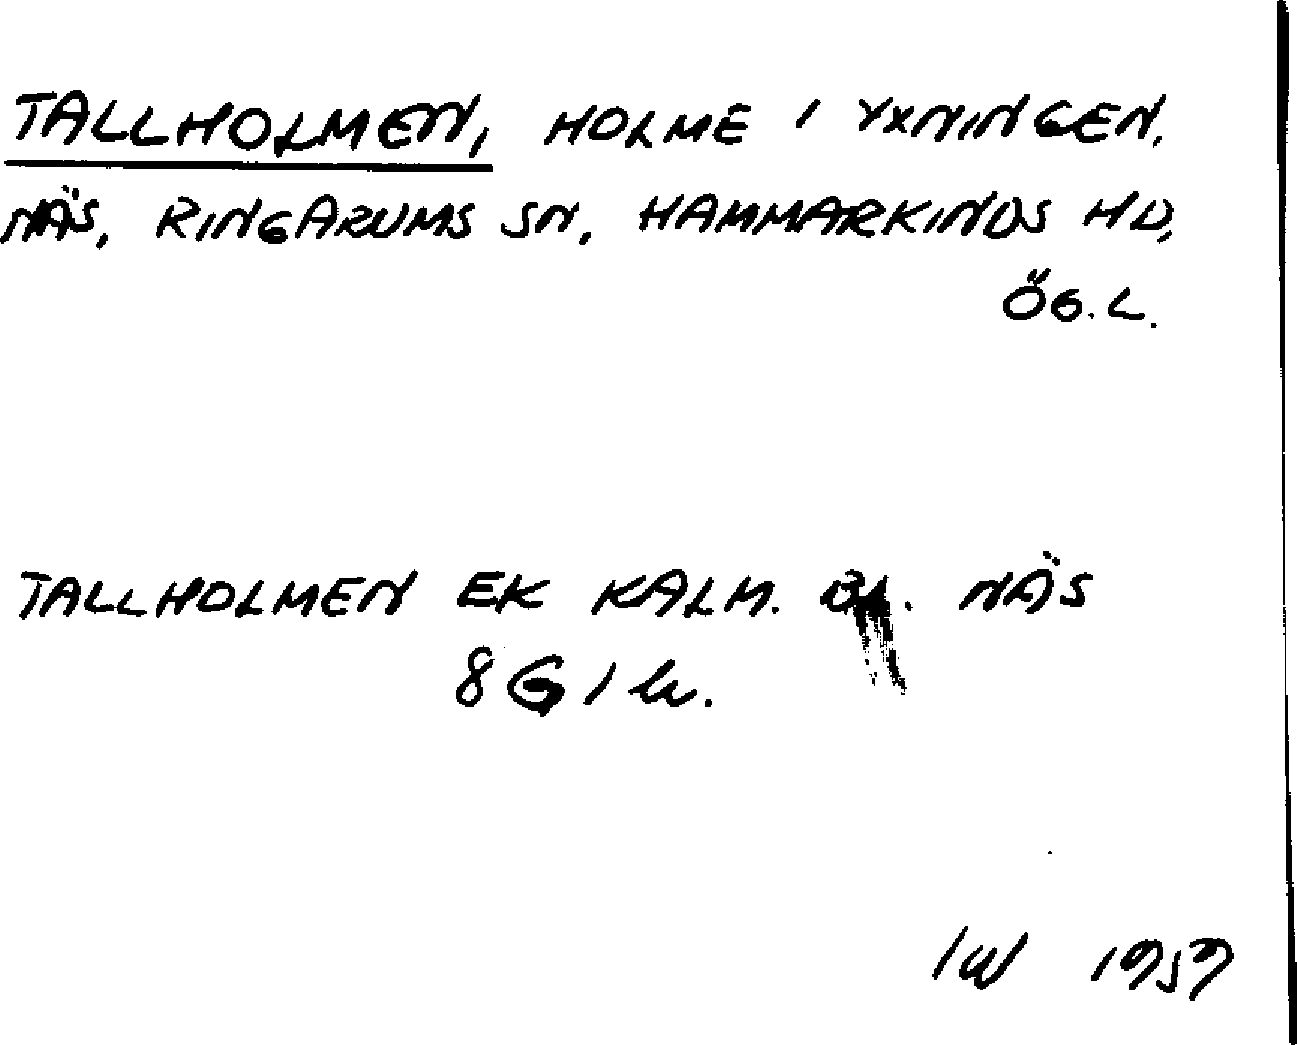 TALLHOLMEN, HOLME I YXNINGEN,
NÄS, RINGARUMS SN, HAMMARKINDS HD,
ÖG. L.
TALLHOLMEN EK KALM. BL. NÄS
8 G 1 h.
IW 1959